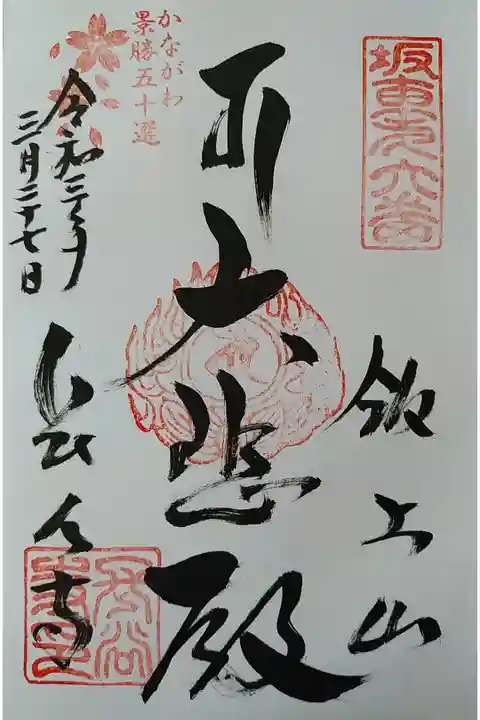 坂東第六番
飯上山
大悲殿
かながわ
景勝五十選
令和三年
三月二十七日
長谷寺